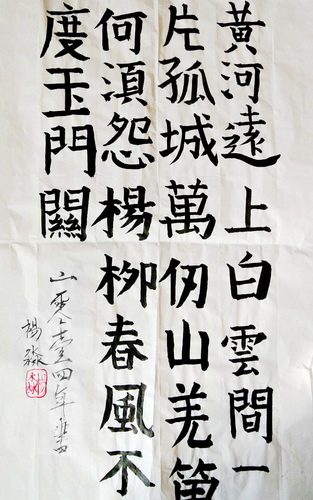 黃河遠上白雲間一
片孤城萬仞山羌笛
何湏怨楊柳春風不
度玉門關
壹四年書
楊淼